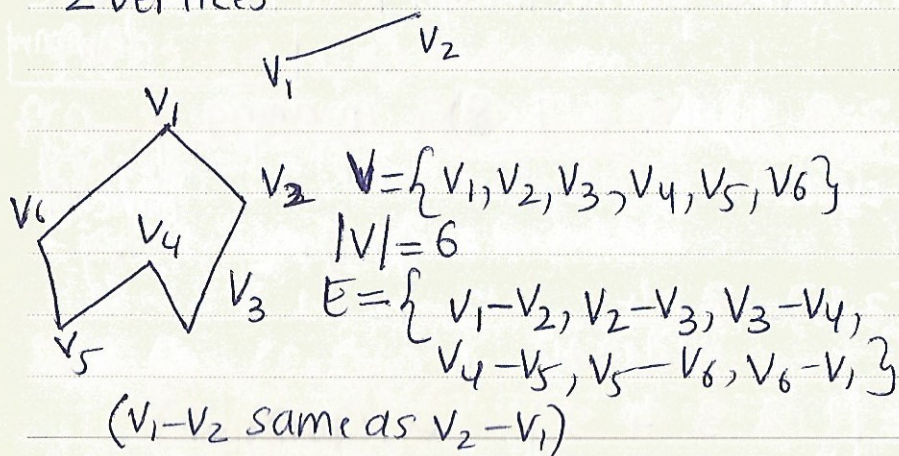 2 vertices
V1 V2
V1
V6 V4 V2 V={V1, V2, V3, V4, V5, V6}
|V|=6
V3 E={V1-V2, V2-V3, V3-V4,
V5 V4-V5, V5-V6, V6-V1}
(V1-V2 same as V2-V1)